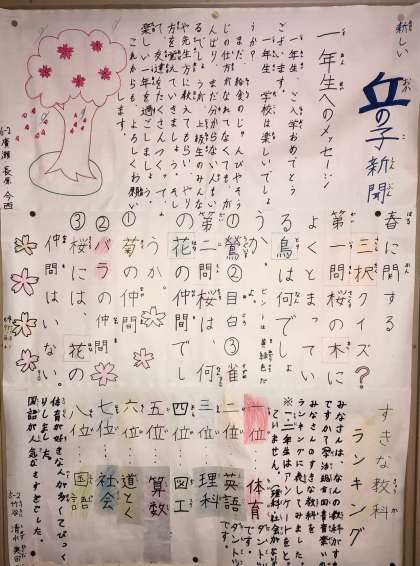 新しい
丘の子新聞
一年生へのメッセージ
一年生、ご入学おめでとう
ございます。
一年生、学校は楽しいでしょ
うか?
じの仕方になれてなくても、が
んばり、まだ分からない人も
や先生方に教えてもらい、やり
方を覚えていきましょう。そし
て、交達をたくさんつくって、
楽しい一年を過ごしましょう。
これからも、よろしくお願い
します。
6-2 廣瀬 長原 今西
春に関する
三択クイズ?
第一問桜の木に
よくとまってい
る鳥は何でしょ
うか。
ヒントは黄緑色だ
①鶯②目白③雀
第二問桜は、何
の花の仲間でし
ょうか。
①菊の仲間
②バラの仲間
③桜には、花の
仲間はいない。
すきな教科
ランキング
みなさんは、なんの教科がす
みなさんのすきな教科を
ランキングに表してみました。
※一、二年生は、アンケートをとっ
ていません。
一位…体育
二位…英語
三位…理科
四位…図工
五位…算数
六位…道とく
七位…社会
八位…国語
体育が好きな人が多くてびっく
りしました。
国語が人気なさすぎでした。
5-2 竹谷 清水 奥田